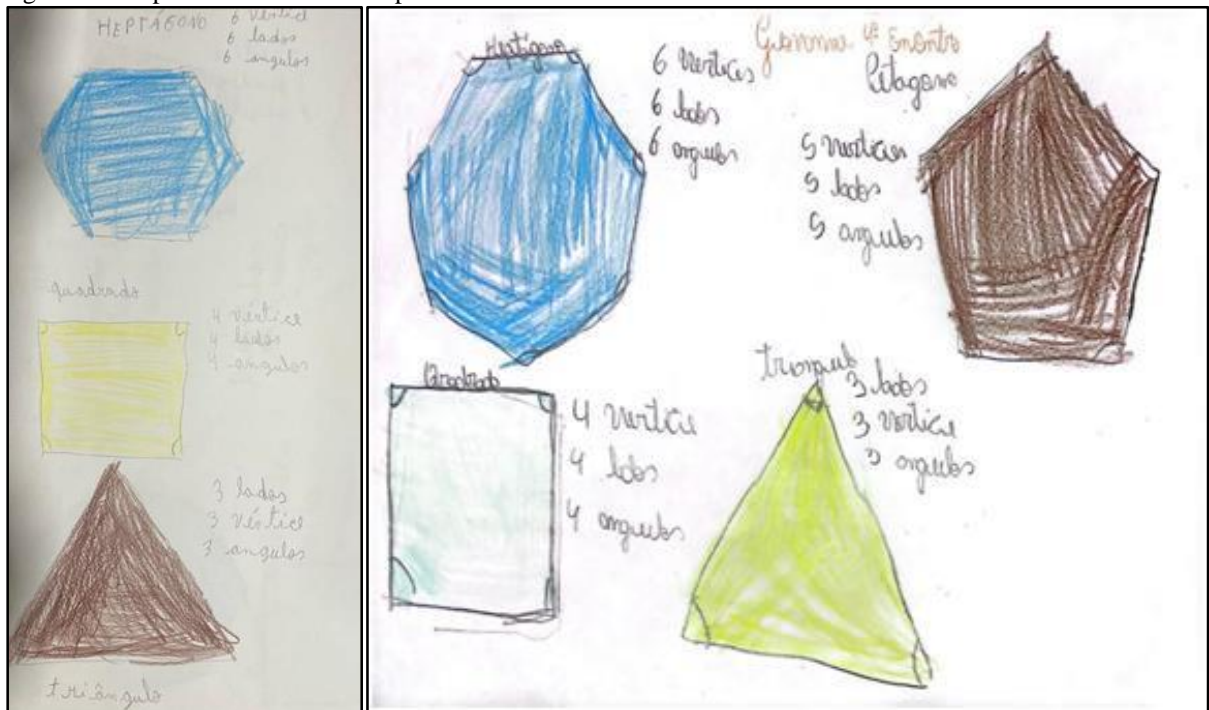 HEPTÁGONO
6 vértice
6 lados
6 ângulos
quadrado
4 vértice
4 lados
4 angulos
3 lados
3 vértice
3 angulos
triângulo
Heptágono
6 vertices
6 lados
6 angulos
4º Encontro
Petagono
5 vertices
5 lados
5 angulos
Quadrado
4 vertice
4 lados
4 angulos
3 lados
3 vertice
3 angulos